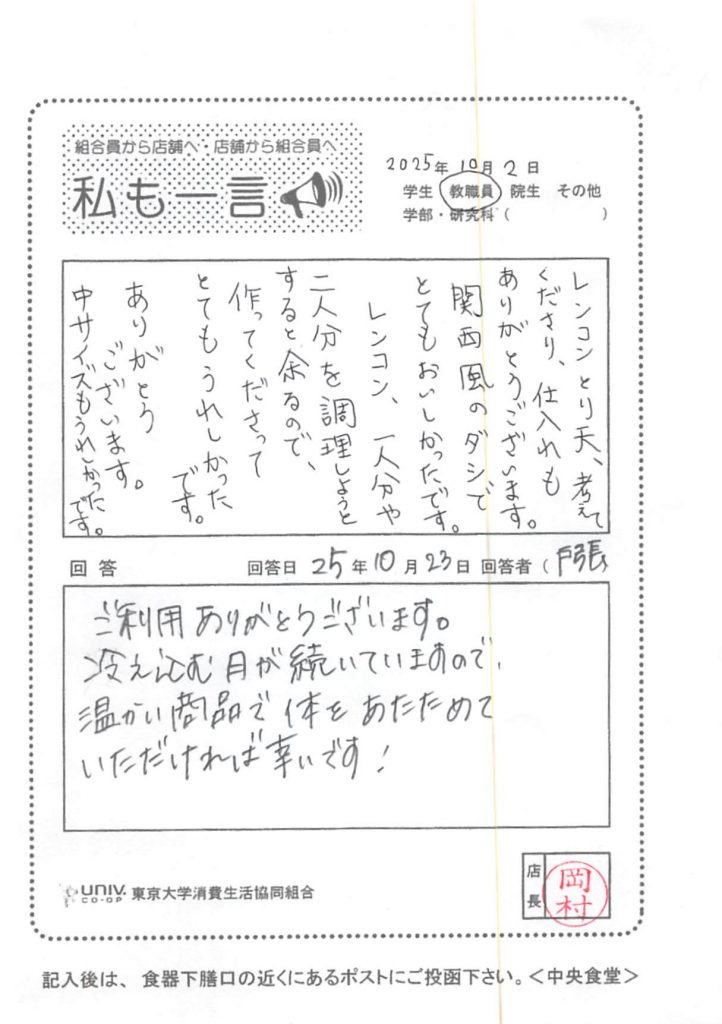 組合員から店舗へ・店舗から組合員へ
私も一言
2025年10月2日
学生 教職員 院生 その他
学部・研究科( )
レンコンとり天、考えて
くださり、仕入れも
ありがとうございます。
関西風のダシで
とてもおいしかったです。
レンコン、一人分や
二人分を調理しようと
すると余るので、
作ってくださって
とてもうれしかった
です。
ありがとう
ございます。
中サイズもうれしかった
です。
回答 回答日 25年10月23日 回答者(戸張
ご利用ありがとうございます。
冷え込む月が続いていますので、
温かい商品で体をあたためて
いただければ幸いです!
UNIV. CO-OP 東京大学消費生活協同組合
店長 岡村
記入後は、食器下膳口の近くにあるポストにご投函下さい。<中央食堂>